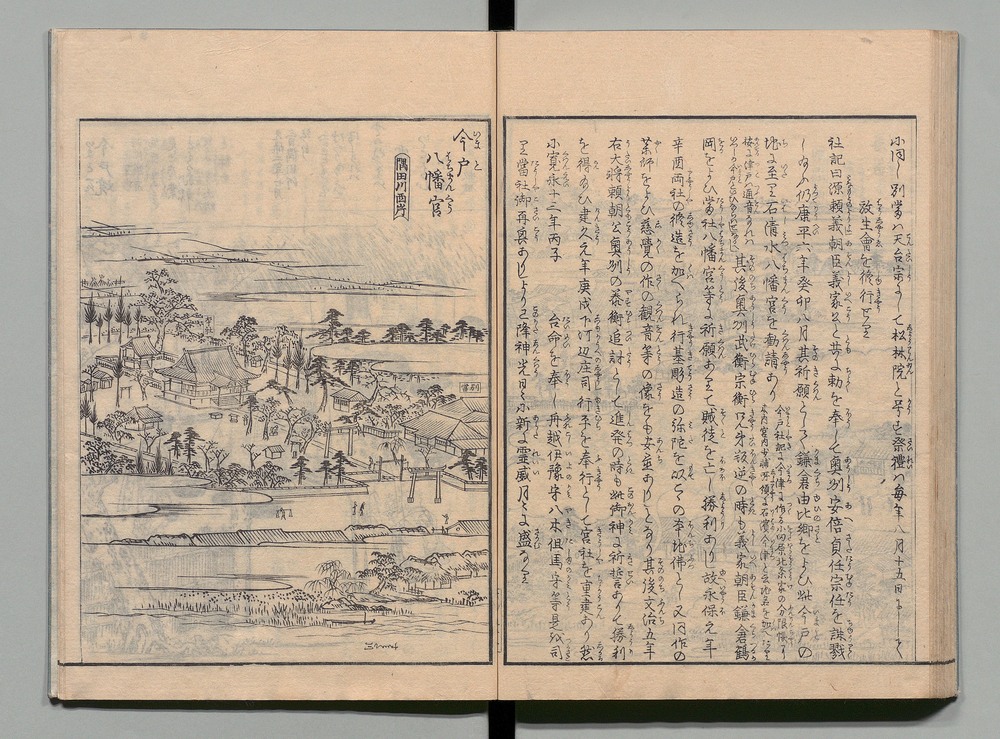 小同じ別當は天台宗にして松林院と号す祭禮は毎年八月十五日にして
放生會を修行せり
社記曰源頼義朝臣義家公と共に勅を奉して奥州安倍貞任宗任を誅戮
し給ふ仍康平六年癸卯八月其祈願として鎌倉由比郷をよひ此今戸の
地に至り石清水八幡宮を勧請あり
其後奥州武衡宗衡兄弟叛逆の時も義家朝臣鎌倉鶴
岡をよひ當社八幡宮等に祈願ありて賊徒を亡し勝利あり故永保元年
辛酉両社の修造を加へられ行基彫造の弥陀を以ての本地佛とし又同作の
薬師をよひ慈覺の作の観音等の像をも安置ありしとなり其後文治五年
右大将頼朝公奥州の泰衡追討として進発の時も此御神に祈誓ありて勝利
を得給ひ建久元年庚戌下河辺庄司行平を奉行として宮社を重建あり然
に寛永十三年丙子 台命を奉し舟越伊豫守八木但馬守等是を司
り當社御再興ありしより已降神光日々に新に霊威月々に盛なり
今戸
八幡宮
隅田川西岸
別當